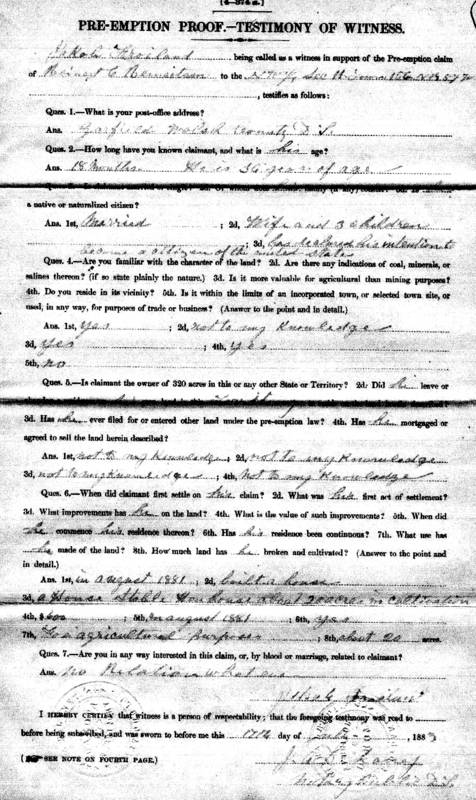 PRE-EMPTION PROOF.—TESTIMONY OF WITNESS.
being called as a witness in support of the Pre-emption claim
of to the Sec
, testifies as follows:
Ques. 1.—What is your post-office address?
Ans. Garfield Walsh County D.T.
Ques. 2.—How long have you known claimant, and what is his age?
Ans. 18 Months. He is 36 year of age
a native or naturalized citizen?
Ans. 1st, Married ; 2d, Wife and 3 children
; 3d, has declared his intention to
become a citizen of the united states
Ques. 4.—Are you familiar with the character of the land? 2d. Are there any indications of coal, minerals, or
salines thereon? (if so state plainly the nature.) 3d. Is it more valuable for agricultural than mining purposes?
4th. Do you reside in its vicinity? 5th. Is it within the limits of an incorporated town, or selected town site, or
used, in any way, for purposes of trade or business? (Answer to the point and in detail.)
Ans. 1st, yes ; 2d, not to my knowledge
3d, yes ; 4th, yes
5th, no
Ques. 5.—Is claimant the owner of 320 acres in this or any other State or Territory? 2d. Did he leave or
3d. Has he ever filed for or entered other land under the pre-emption law? 4th. Has he mortgaged or
agreed to sell the land herein described?
Ans. 1st, not to my knowledge ; 2d, not to my knowledge
3d, not to my knowledge ; 4th, not to my knowledge
Ques. 6.—When did claimant first settle on his claim? 2d. What was his first act of settlement?
3d. What improvements has he on the land? 4th. What is the value of such improvements? 5th. When did
he commence his residence thereon? 6th. Has his residence been continuous? 7th. What use has
he made of the land? 8th. How much land has he broken and cultivated? (Answer to the point and
in detail.)
Ans. 1st, in august 1881 ; 2d, built a house
3d, a House Stable Henhouse about 20 acres in cultivation
4th, $600 5th, in august 1881 ; 6th, yes
7th, For agricultural purposes ; 8th, about 20 acres.
Ques. 7.—Are you in any way interested in this claim, or, by blood or marriage, related to claimant?
Ans. no Relation what ever
I HEREBY CERTIFY that witness is a person of respectability; that the foregoing testimony was read to
before being subscribed, and was sworn to before me this 17th day of , 1883
(SEE NOTE ON FOURTH PAGE.)
Notary Public D.T.